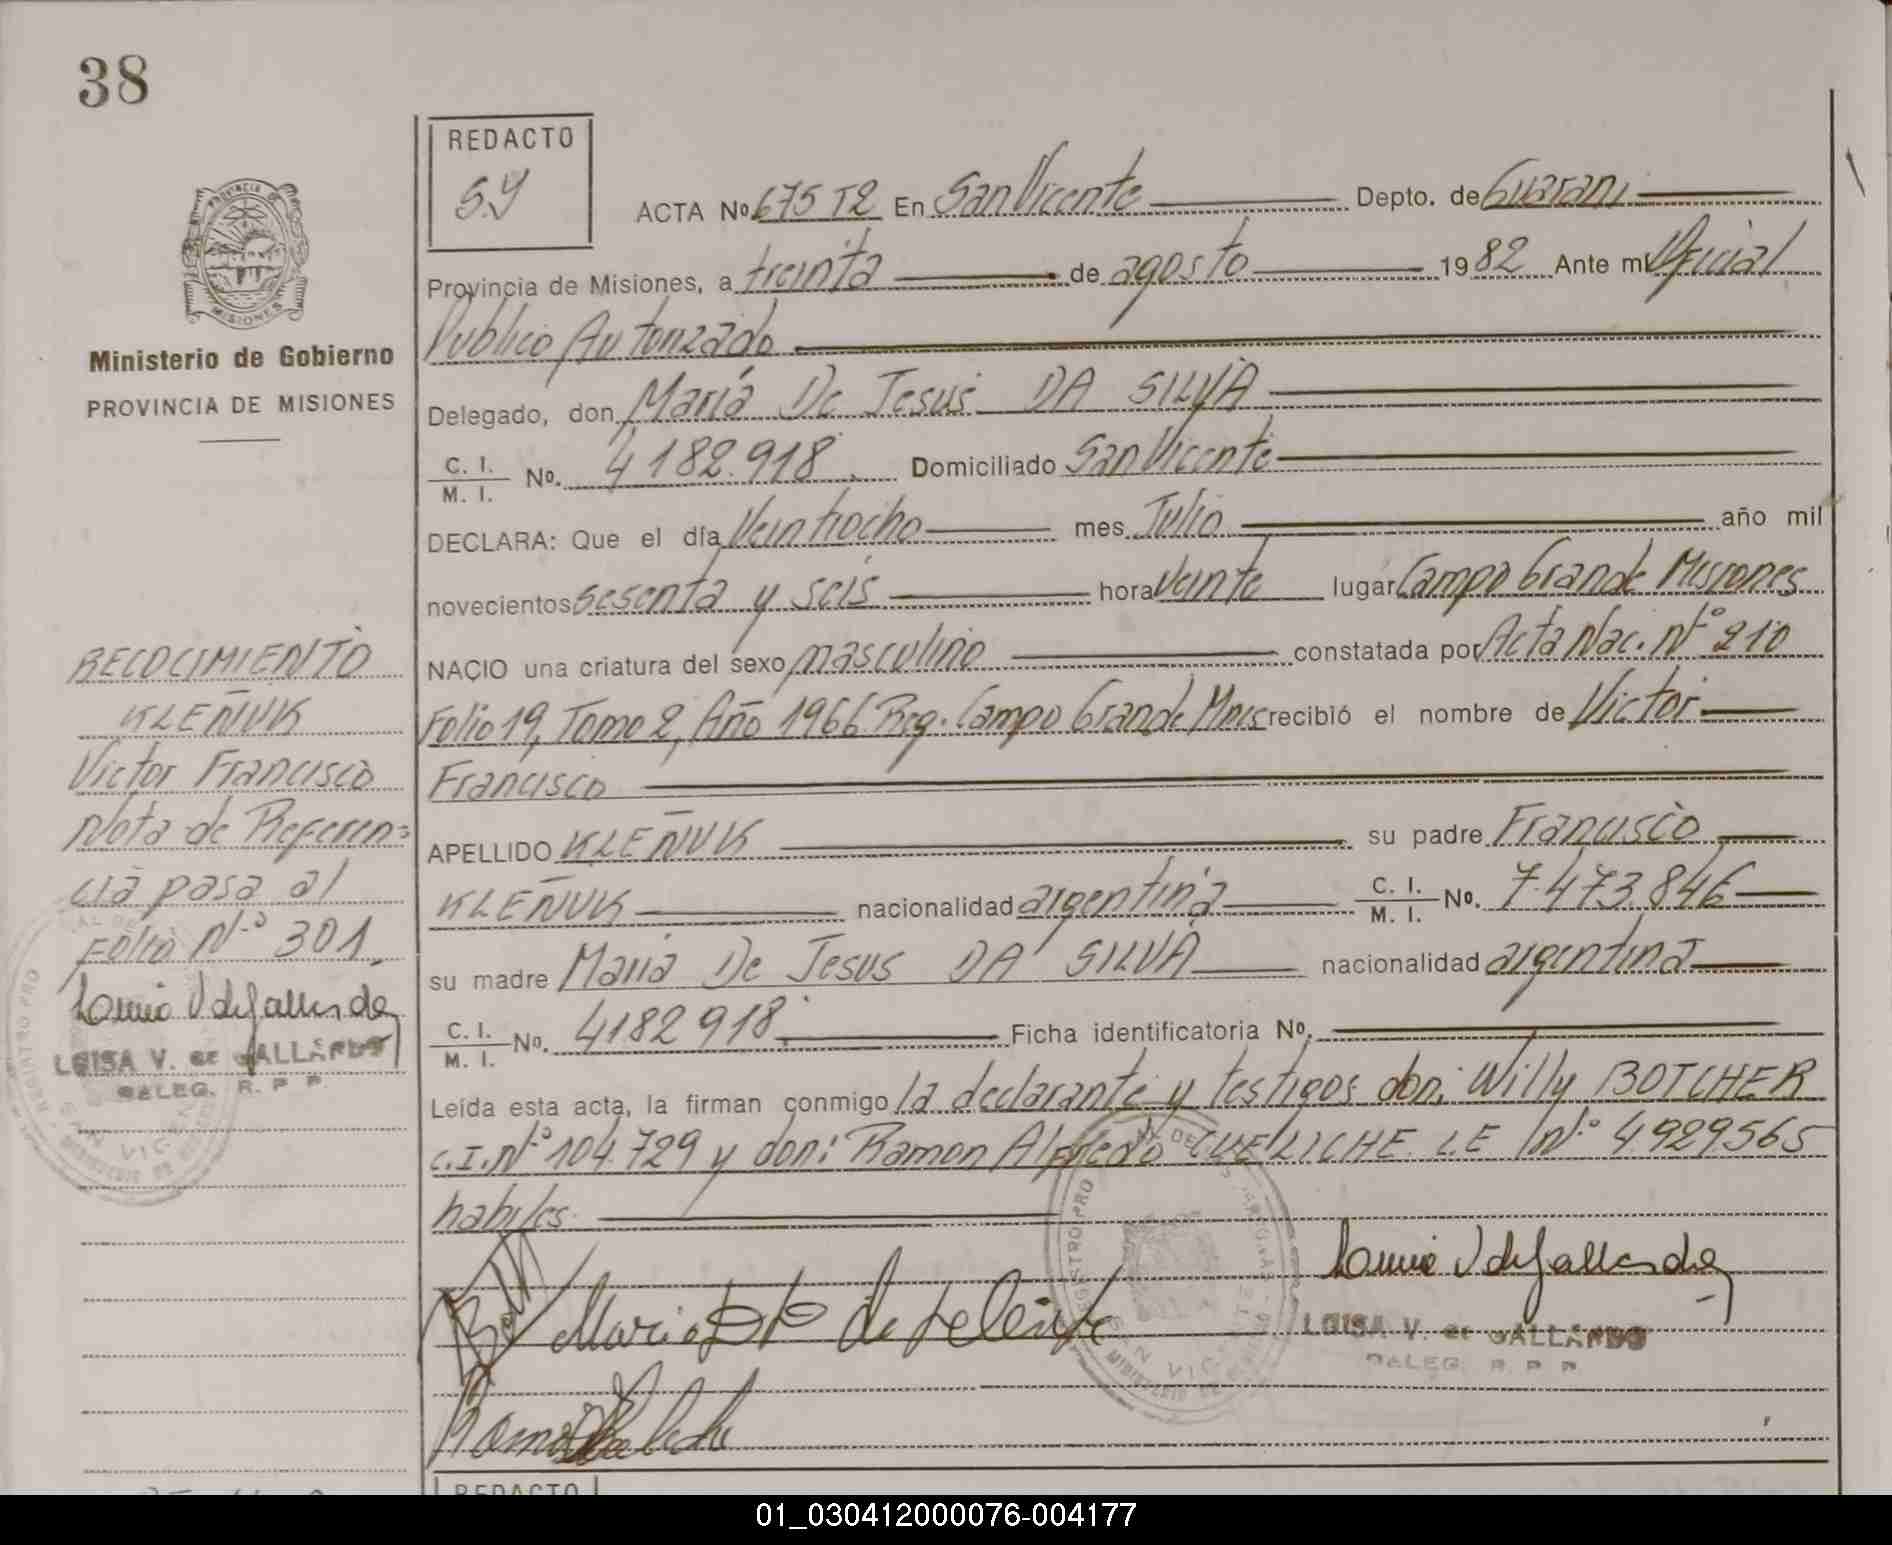 38
REDACTO
S.Y
ACTA No. 675 T2 En San Vicente Depto. de Guarani
Provincia de Misiones, a treinta de agosto 1982 Ante mi Oficial
Publico Autorizado
Delegado, don María De Jesus DA SILVA
C. I.
M. I. No. 4.182.918 Domiciliado San Vicente
DECLARA: Que el día Veintiocho mes Julio año mil
novecientos sesenta y seis hora veinte lugar Campo Grande Misiones
NACIO una criatura del sexo masculino constatada por Acta Nac. Nº 210
Folio 19, Tomo 2, Año 1966 Reg. Campo Grande Mnes recibió el nombre de Victor
Francisco
APELLIDO KLEÑUK su padre Francisco
KLEÑUK nacionalidad argentina C. I.
M. I. No. 7.473.846
su madre Maria De Jesus DA SILVA nacionalidad argentina
C. I.
M. I. No. 4182918 Ficha identificatoria No.
Leída esta acta, la firman conmigo la declarante y testigos don; Willy BOTCHER
C.I.Nº 104.729 y don: Ramon Alfredo CUELLCHE LE Nº 4.929565
habiles
LUISA V. DE GALLARDO
DELEG. R. P. P.
PROVINCIA DE
MISIONES
Ministerio de Gobierno
PROVINCIA DE MISIONES
RECOCIMIENTO
KLEÑUK
Victor Francisco
Nota de Referen=
cia pasa al
Folio Nº 301.
LUISA V. DE GALLARDO
DELEG. R. P. P.
REDACTO
01_030412000076-004177